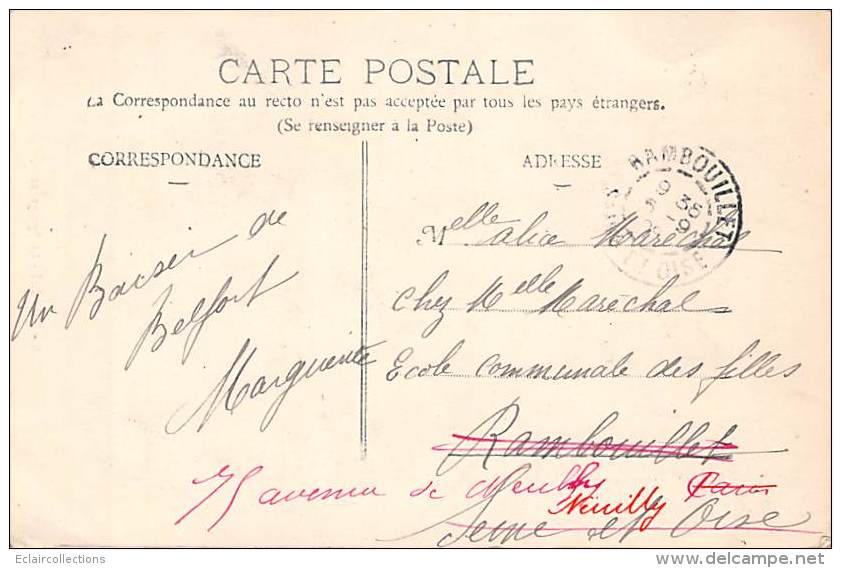 CARTE POSTALE
La Correspondance au recto n'est pas acceptée par tous les pays étrangers.
(Se renseigner à la Poste)
CORRESPONDANCE
ADRESSE
RAMBOUILLET
9 35
ET OISE
Un Baiser de
Belfort
Marguerite
Melle Alice Maréchal
chez Melle Maréchal
Ecole communale des filles
Rambouillet
75 avenue de Neuilly Paris
Neuilly
Seine et Oise
Eclaircollections
delcampe.net